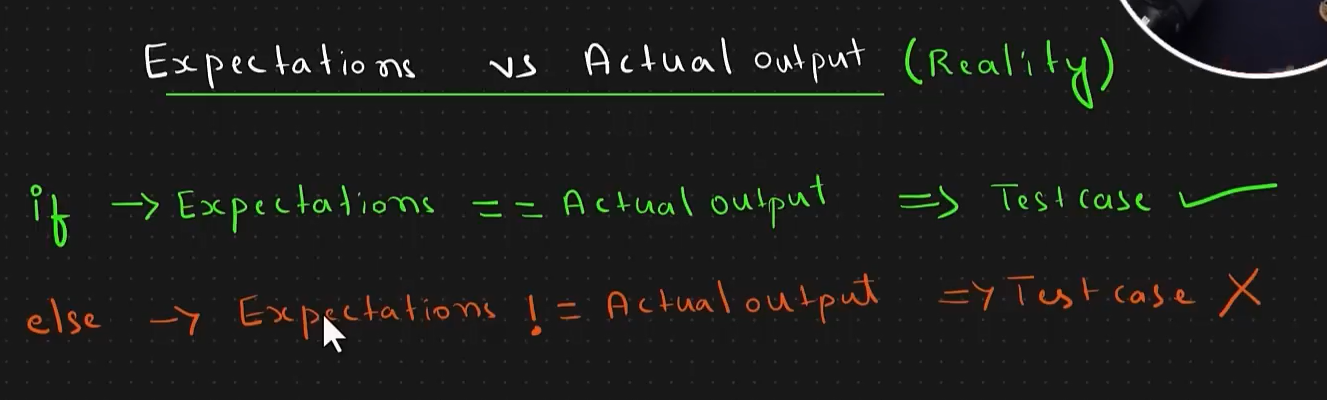 Expectations vs Actual output (Reality)
if → Expectations == Actual output => Test case ✓
else → Expectations != Actual output => Test case X